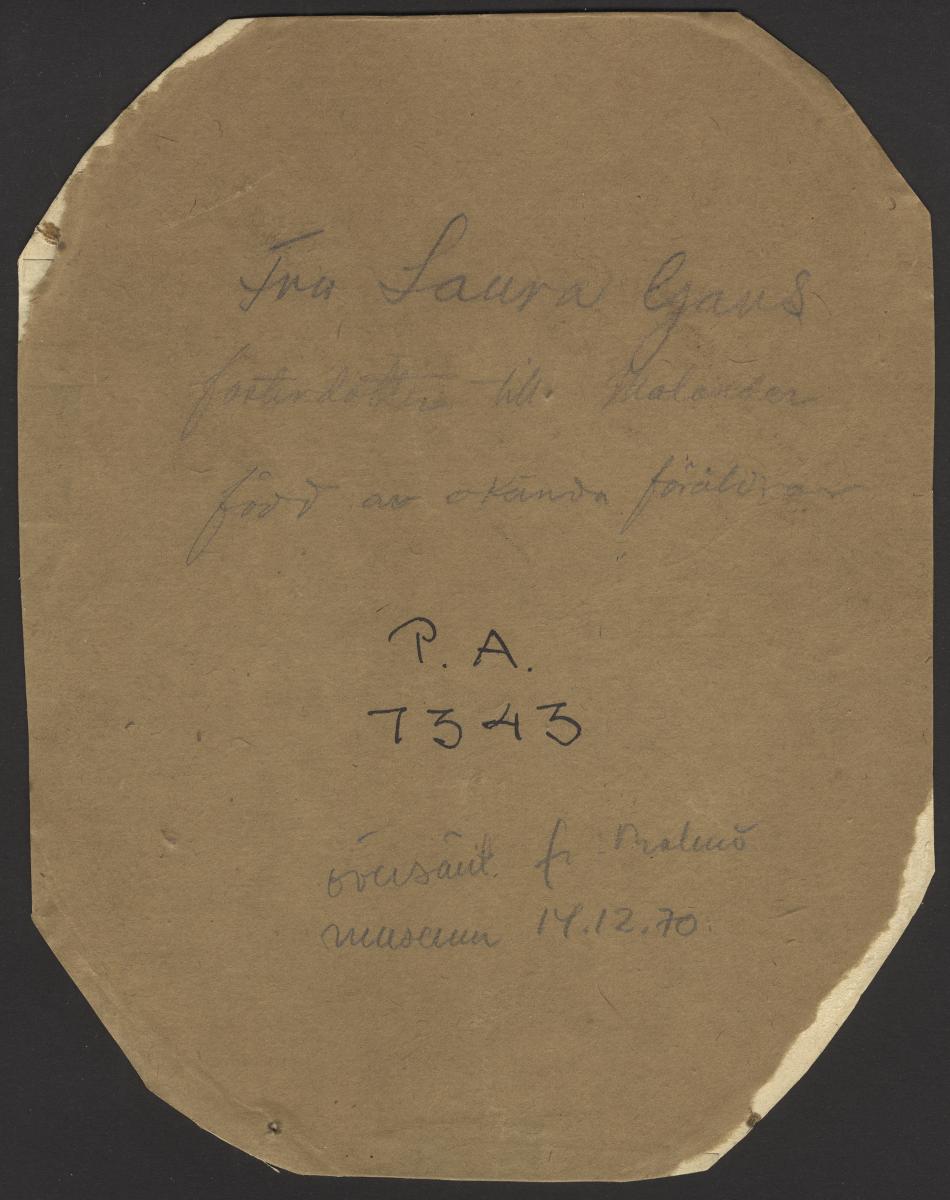 Fru Laura Gjans
fosterdotter till
född av okända föräldrar
P. A.
7343
översänt fr Malmö
museum 14.12.70.